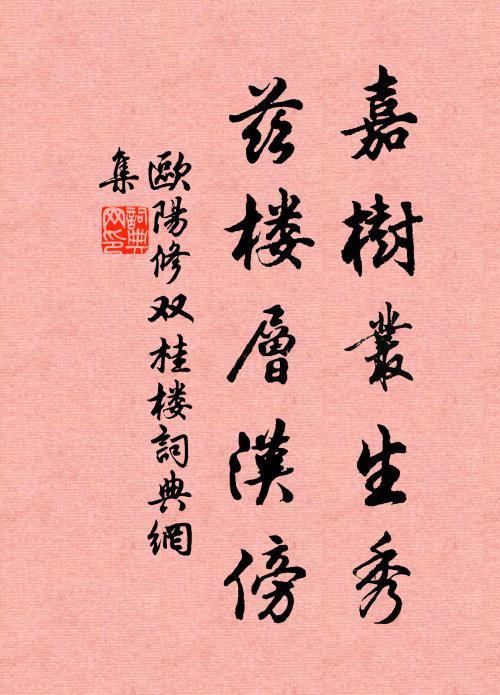 嘉樹叢生秀
茲楼層漢傍
歐陽修双桂楼詞典網
集
詞典网印